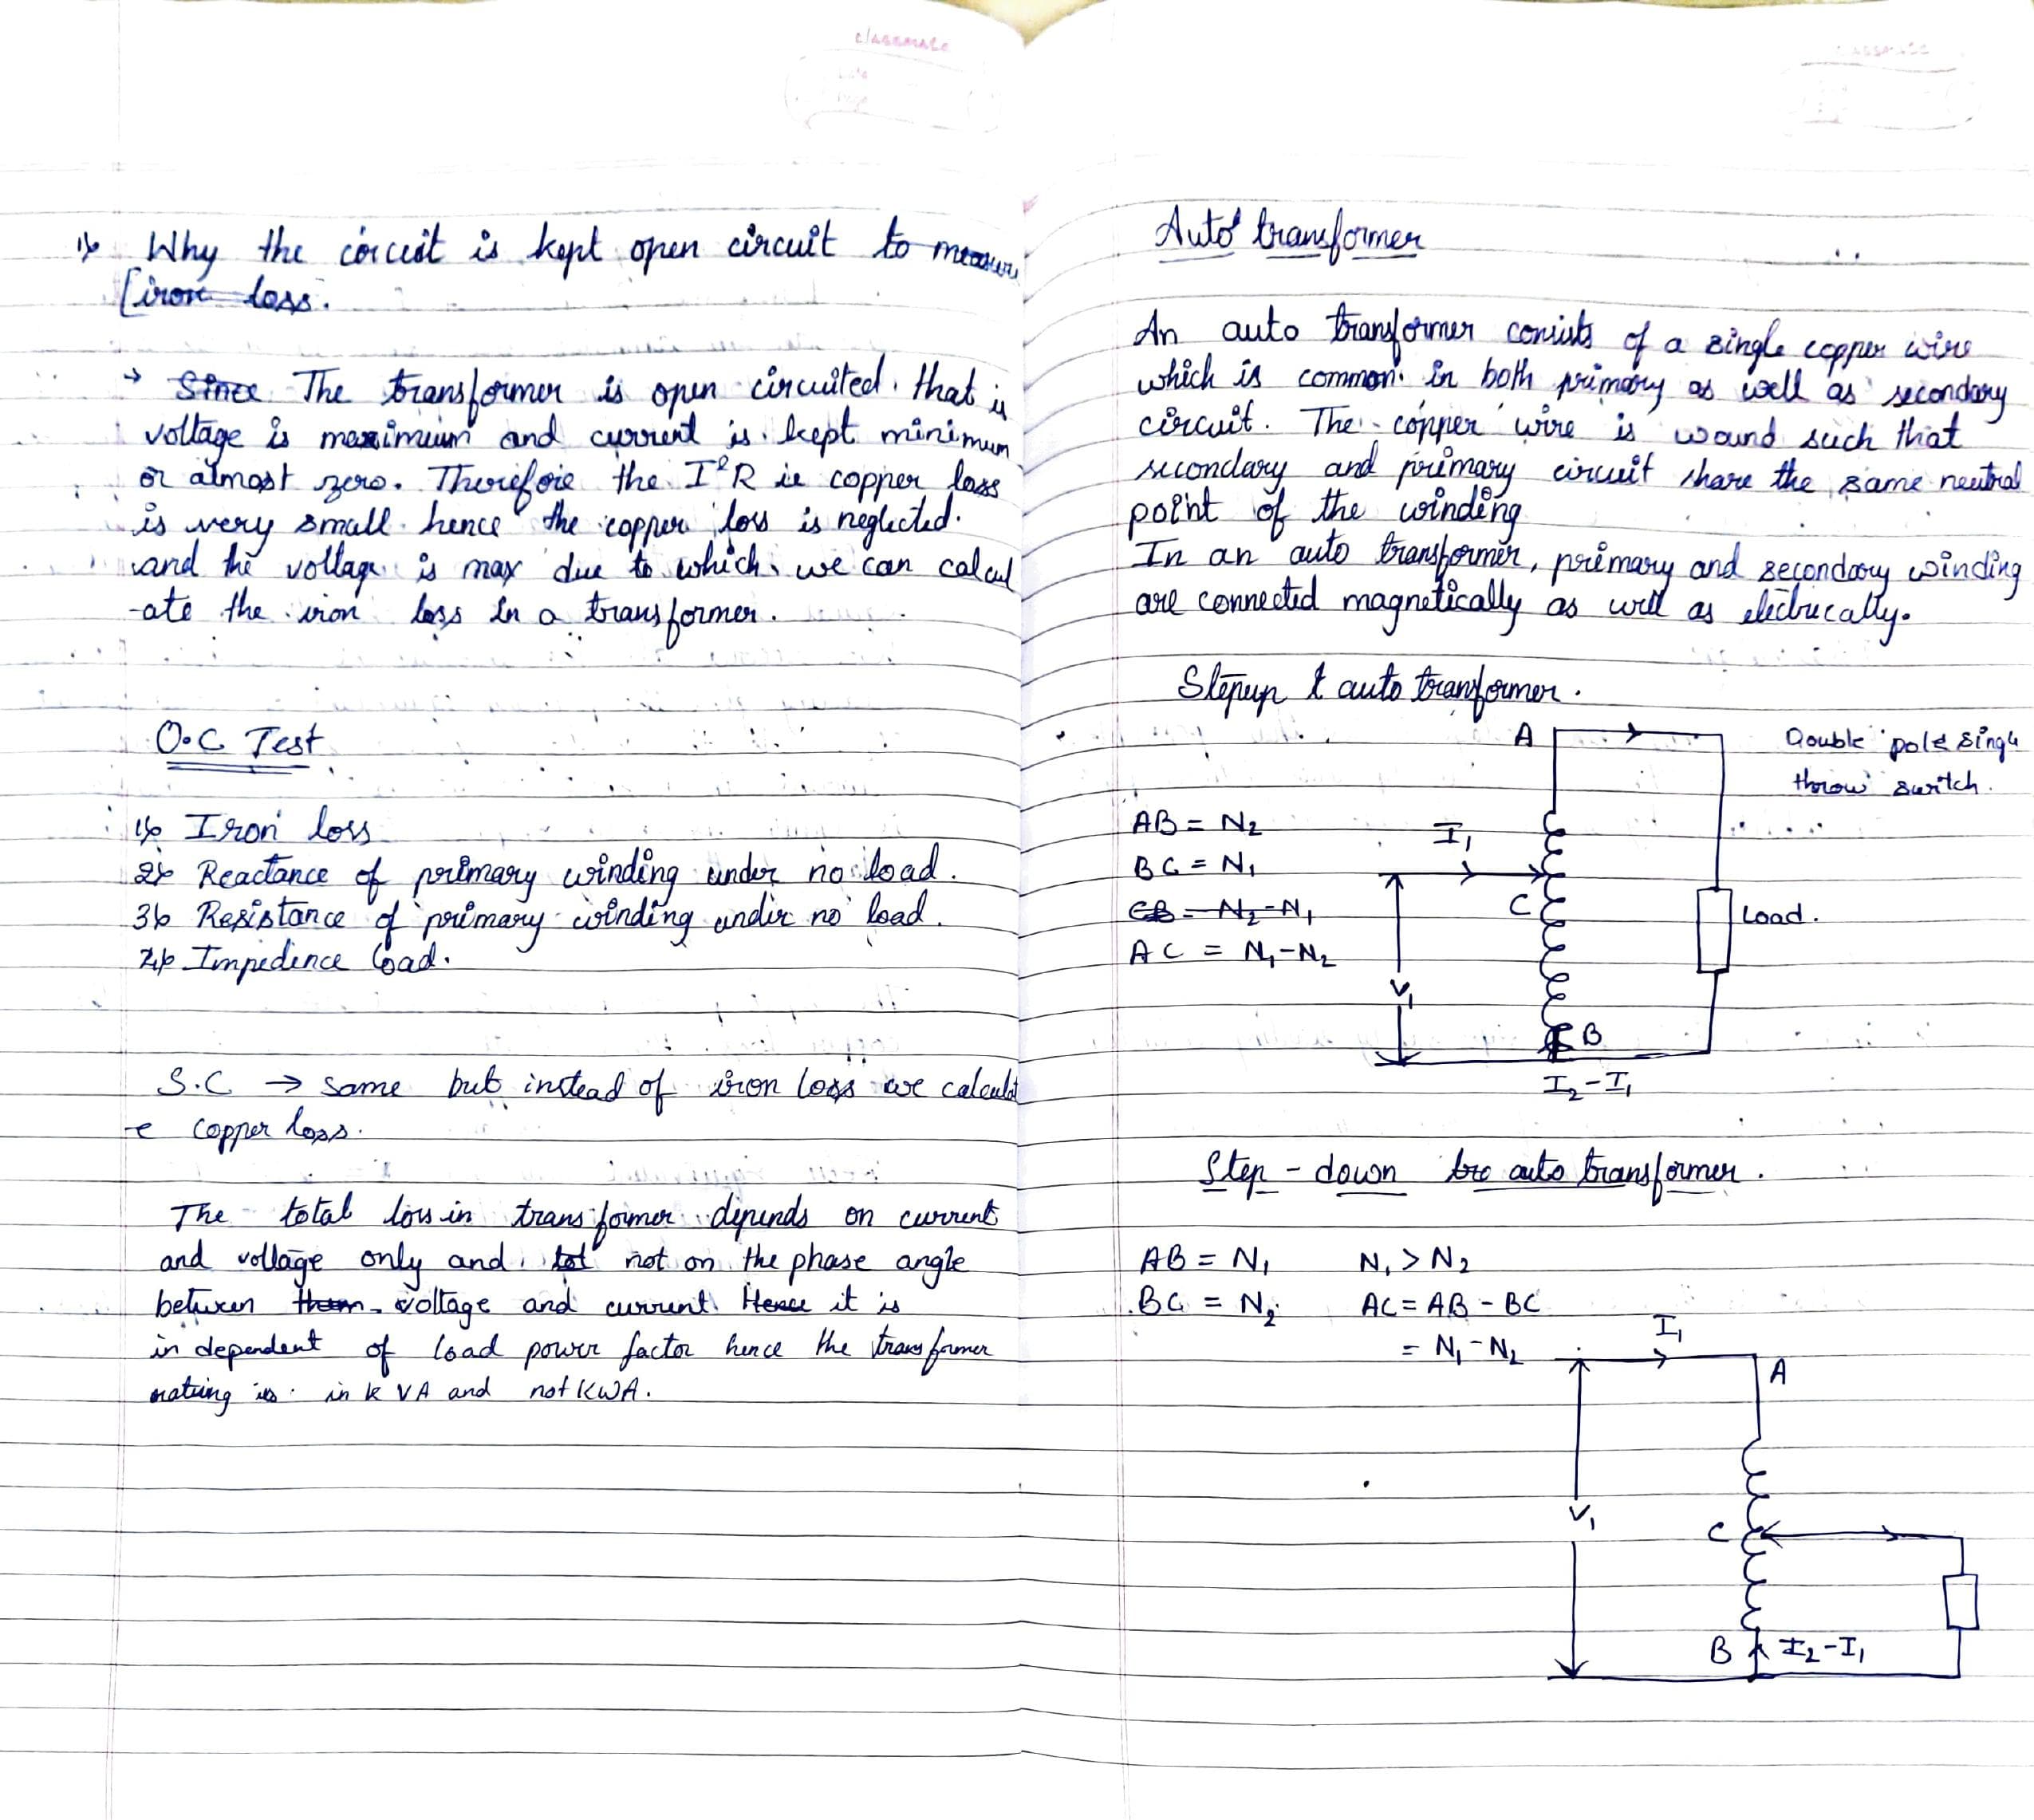 classmate
1) Why the circuit is kept open circuit to measure
iron loss.
→ Since The transformer is open circuited. that is
voltage is maximum and current is kept minimum
or almost zero. Therefore the I²R ie copper loss
is very small. hence the copper loss is neglected.
and the voltage is max due to which we can calcul
-ate the iron loss in a transformer.
O.C Test
1) Iron loss
2) Reactance of primary winding under no load.
3) Resistance of primary winding under no load.
4) Impedence load.
S.C → same but instead of iron loss we calculat
e copper loss.
The total loss in transformer depends on current
and voltage only and tot not on the phase angle
between them voltage and current. Hence it is
independent of load power factor hence the transformer
rating is in k VA and not KWA.
Auto transformer
An auto transformer consists of a single copper wire
which is common in both primary as well as secondary
circuit. The copper wire is wound such that
secondary and primary circuit share the same neutral
point of the winding
In an auto transformer, primary and secondary winding
are connected magnetically as well as electrically.
Stepup t auto transformer.
A
Double pole single
throw switch.
AB = N₂
I₁
BC = N₁
CB = N₂-N₁
C
Load.
AC = N₁-N₂
V₁
B
I₂-I₁
Step-down tra auto transformer.
AB = N₁ N₁ > N₂
BC = N₂ AC = AB - BC
= N₁-N₂
I₁
A
V₁
C
B I₂-I₁